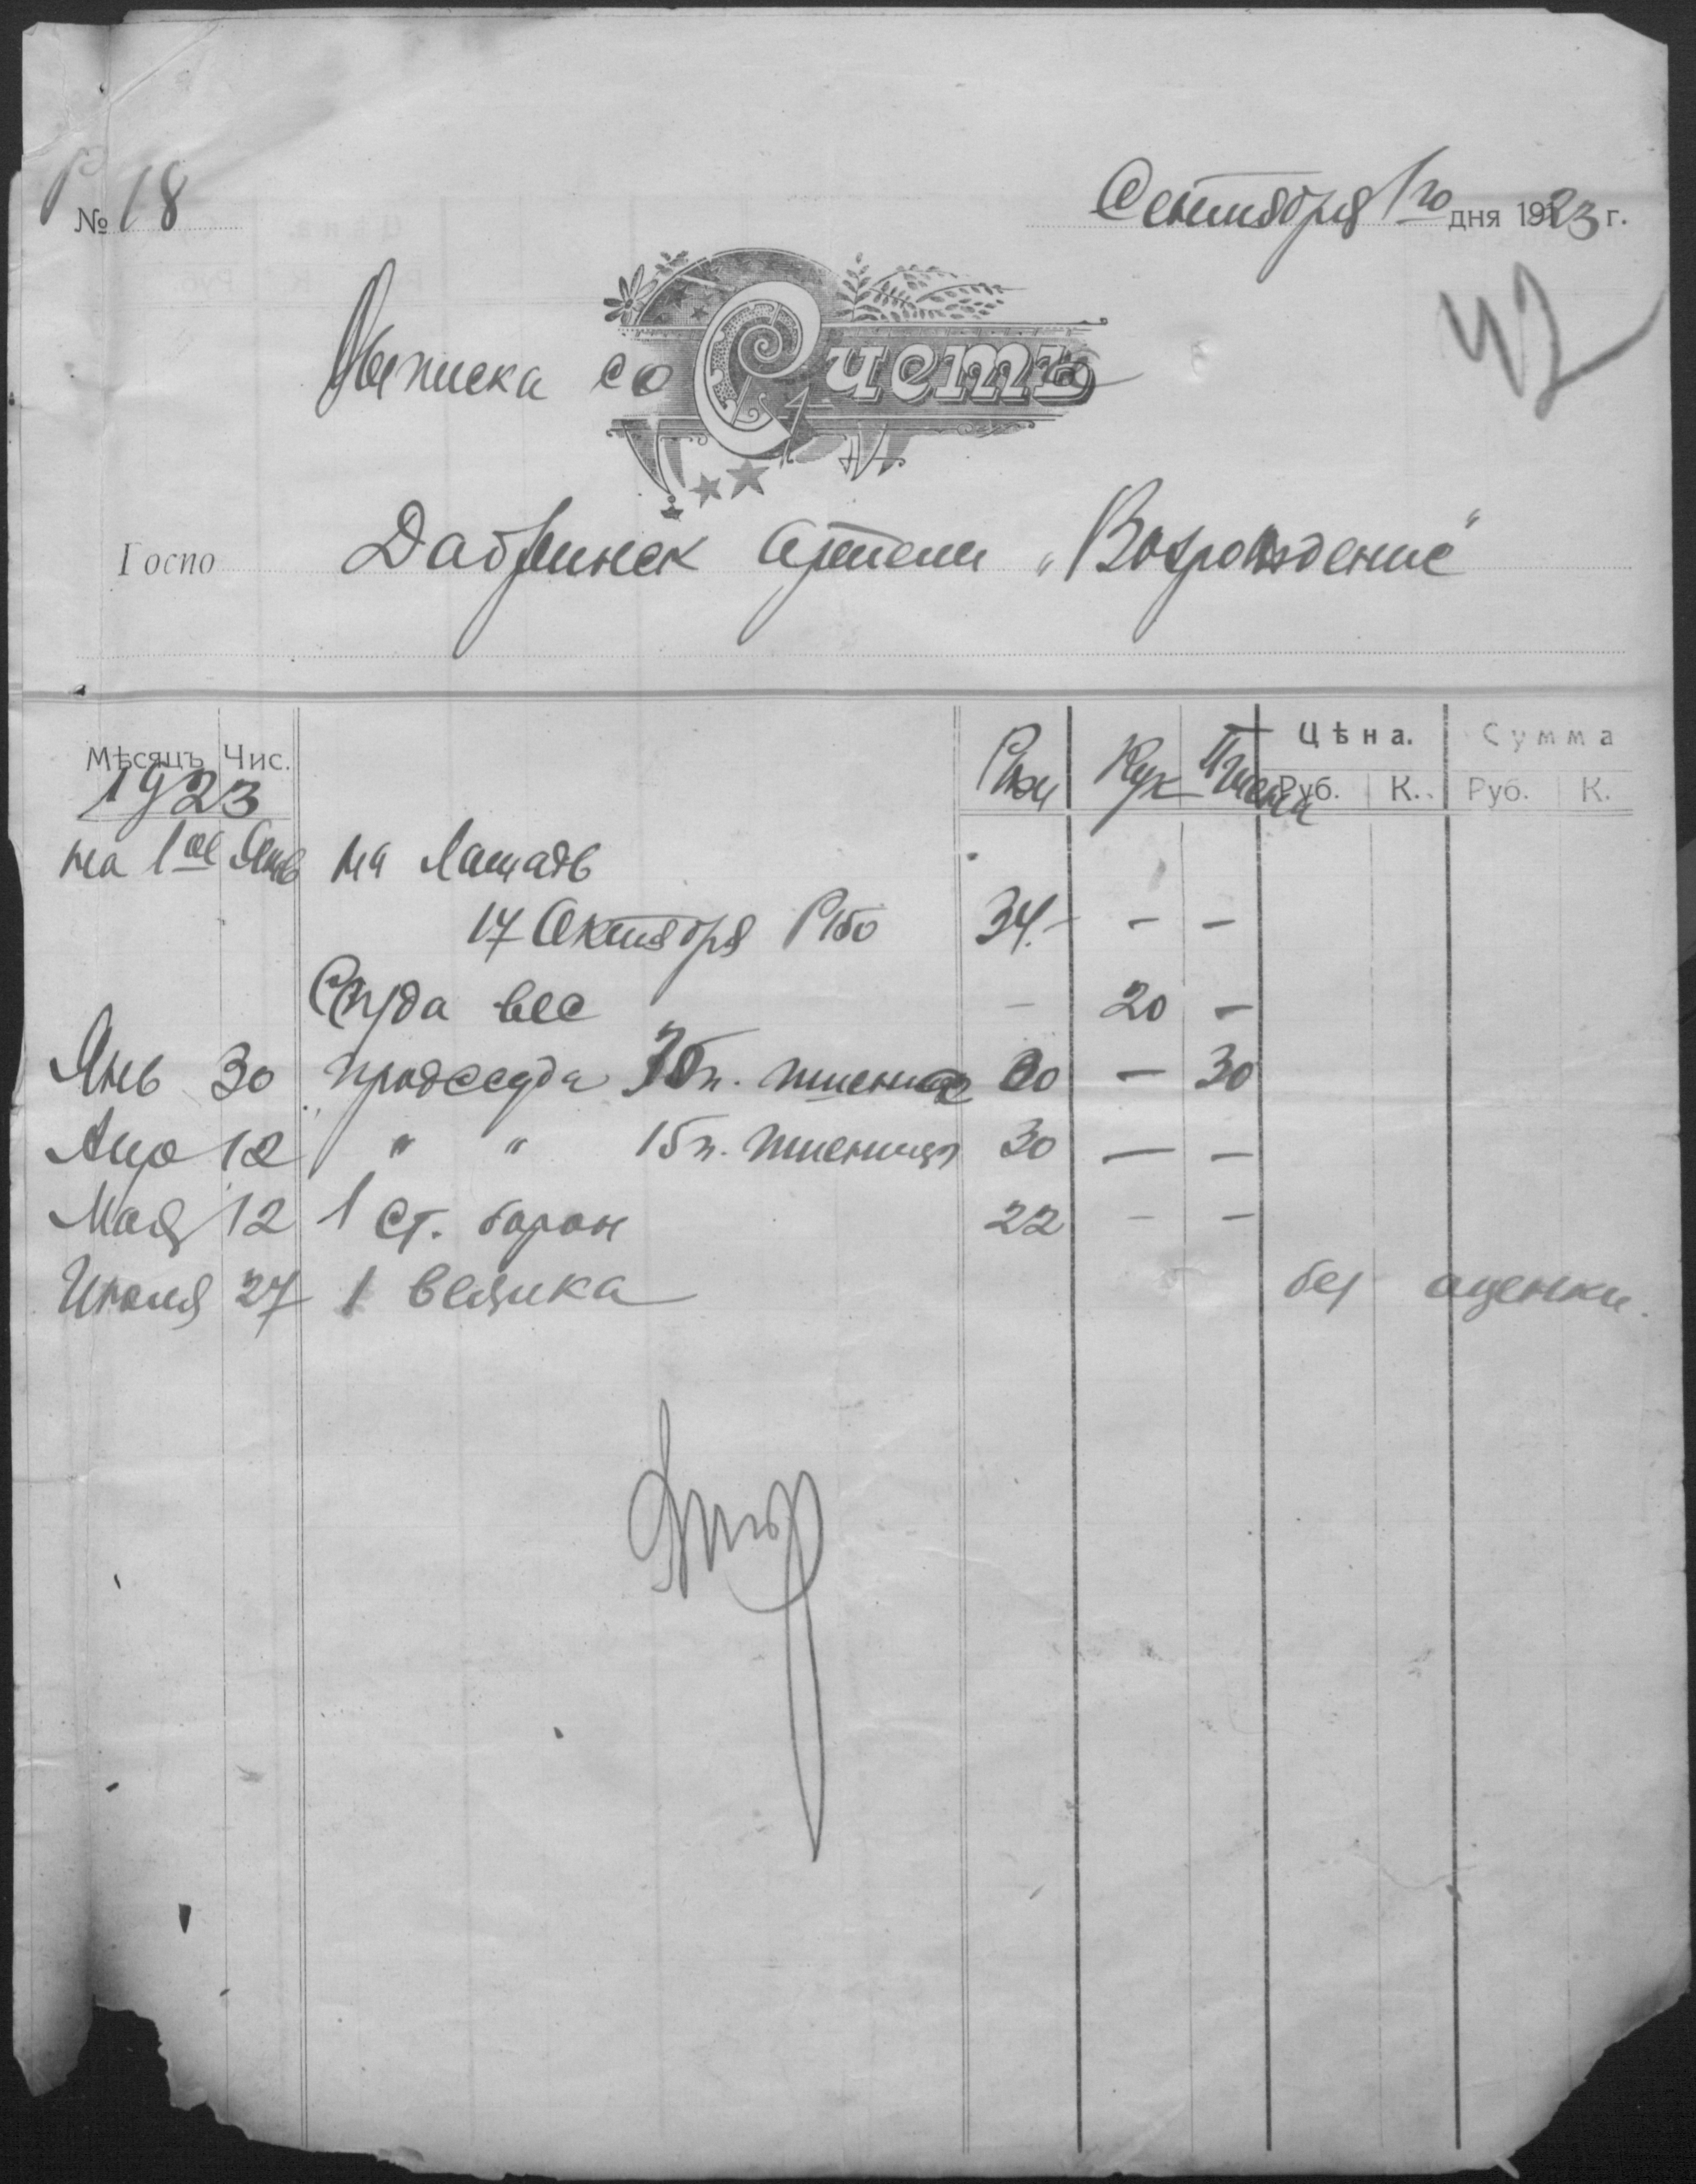 № 18
Сентября 1го дня 1923 г.
42
Выписка со Счета
Госпо Добринск Артели „Возрождение“
Мѣсяцъ Чис. Ржи Кук Пшена Цѣна. Сумма
Руб. К. Руб. К.
1923
на 1ое Янв на Лошадь
17 Октября Р150 34.- — —
Ссуда вес — 20 —
Янв 30 продссуда 30п. пшеница 60 — 30
Апр 12 " " 15п. пшеница 30 — —
Мая 12 1 ст. борон 22 — —
Июля 27 1 веялка без оценки.